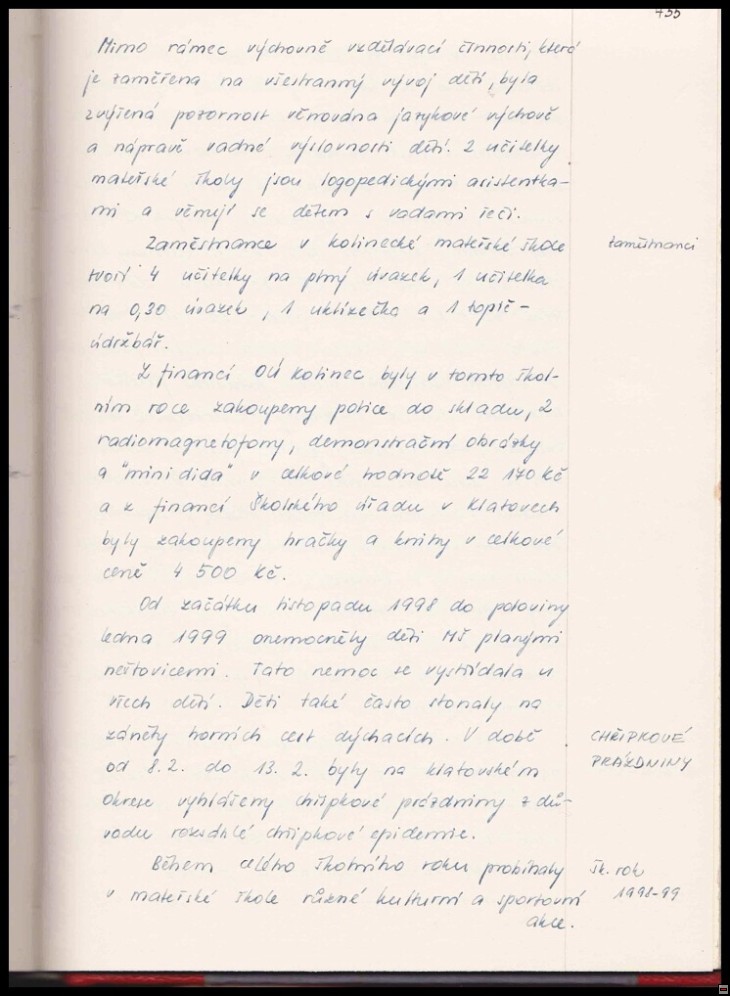 455
Mimo rámec výchovně vzdělávací činnosti, která
je zaměřena na všestranný vývoj dětí, byla
zvýšená pozornost věnována jazykové výchově
a nápravě vadné výslovnosti dětí. 2 učitelky
mateřské školy jsou logopedickými asistentka-
mi a věnují se dětem s vadami řeči.
Zaměstnance v kolinecké mateřské škole
zaměstnanci
tvoří 4 učitelky na plný úvazek, 1 učitelka
na 0,30 úvazek, 1 uklízečka a 1 topič-
údržbář.
Z financí OÚ Kolinec byly v tomto škol-
ním roce zakoupeny police do skladu, 2
radiomagnetofony, demonstrační obrázky
a "minidida" v celkové hodnotě 22 170 Kč
a z financí Školského úřadu v Klatovech
byly zakoupeny hračky a knihy v celkové
ceně 4 500 Kč.
Od začátku listopadu 1998 do poloviny
ledna 1999 onemocněly děti MŠ planými
neštovicemi. Tato nemoc se vystřídala u
všech dětí. Děti také často stonaly na
záněty horních cest dýchacích. V době
CHŘIPKOVÉ
od 8.2. do 13.2. byly na klatovském
PRÁZDNINY
okrese vyhlášeny chřipkové prázdniny z dů-
vodu rozsáhlé chřipkové epidemie.
Během celého školního roku probíhaly
šk. rok
v mateřské škole různé kulturní a sportovní
1998-99
akce.